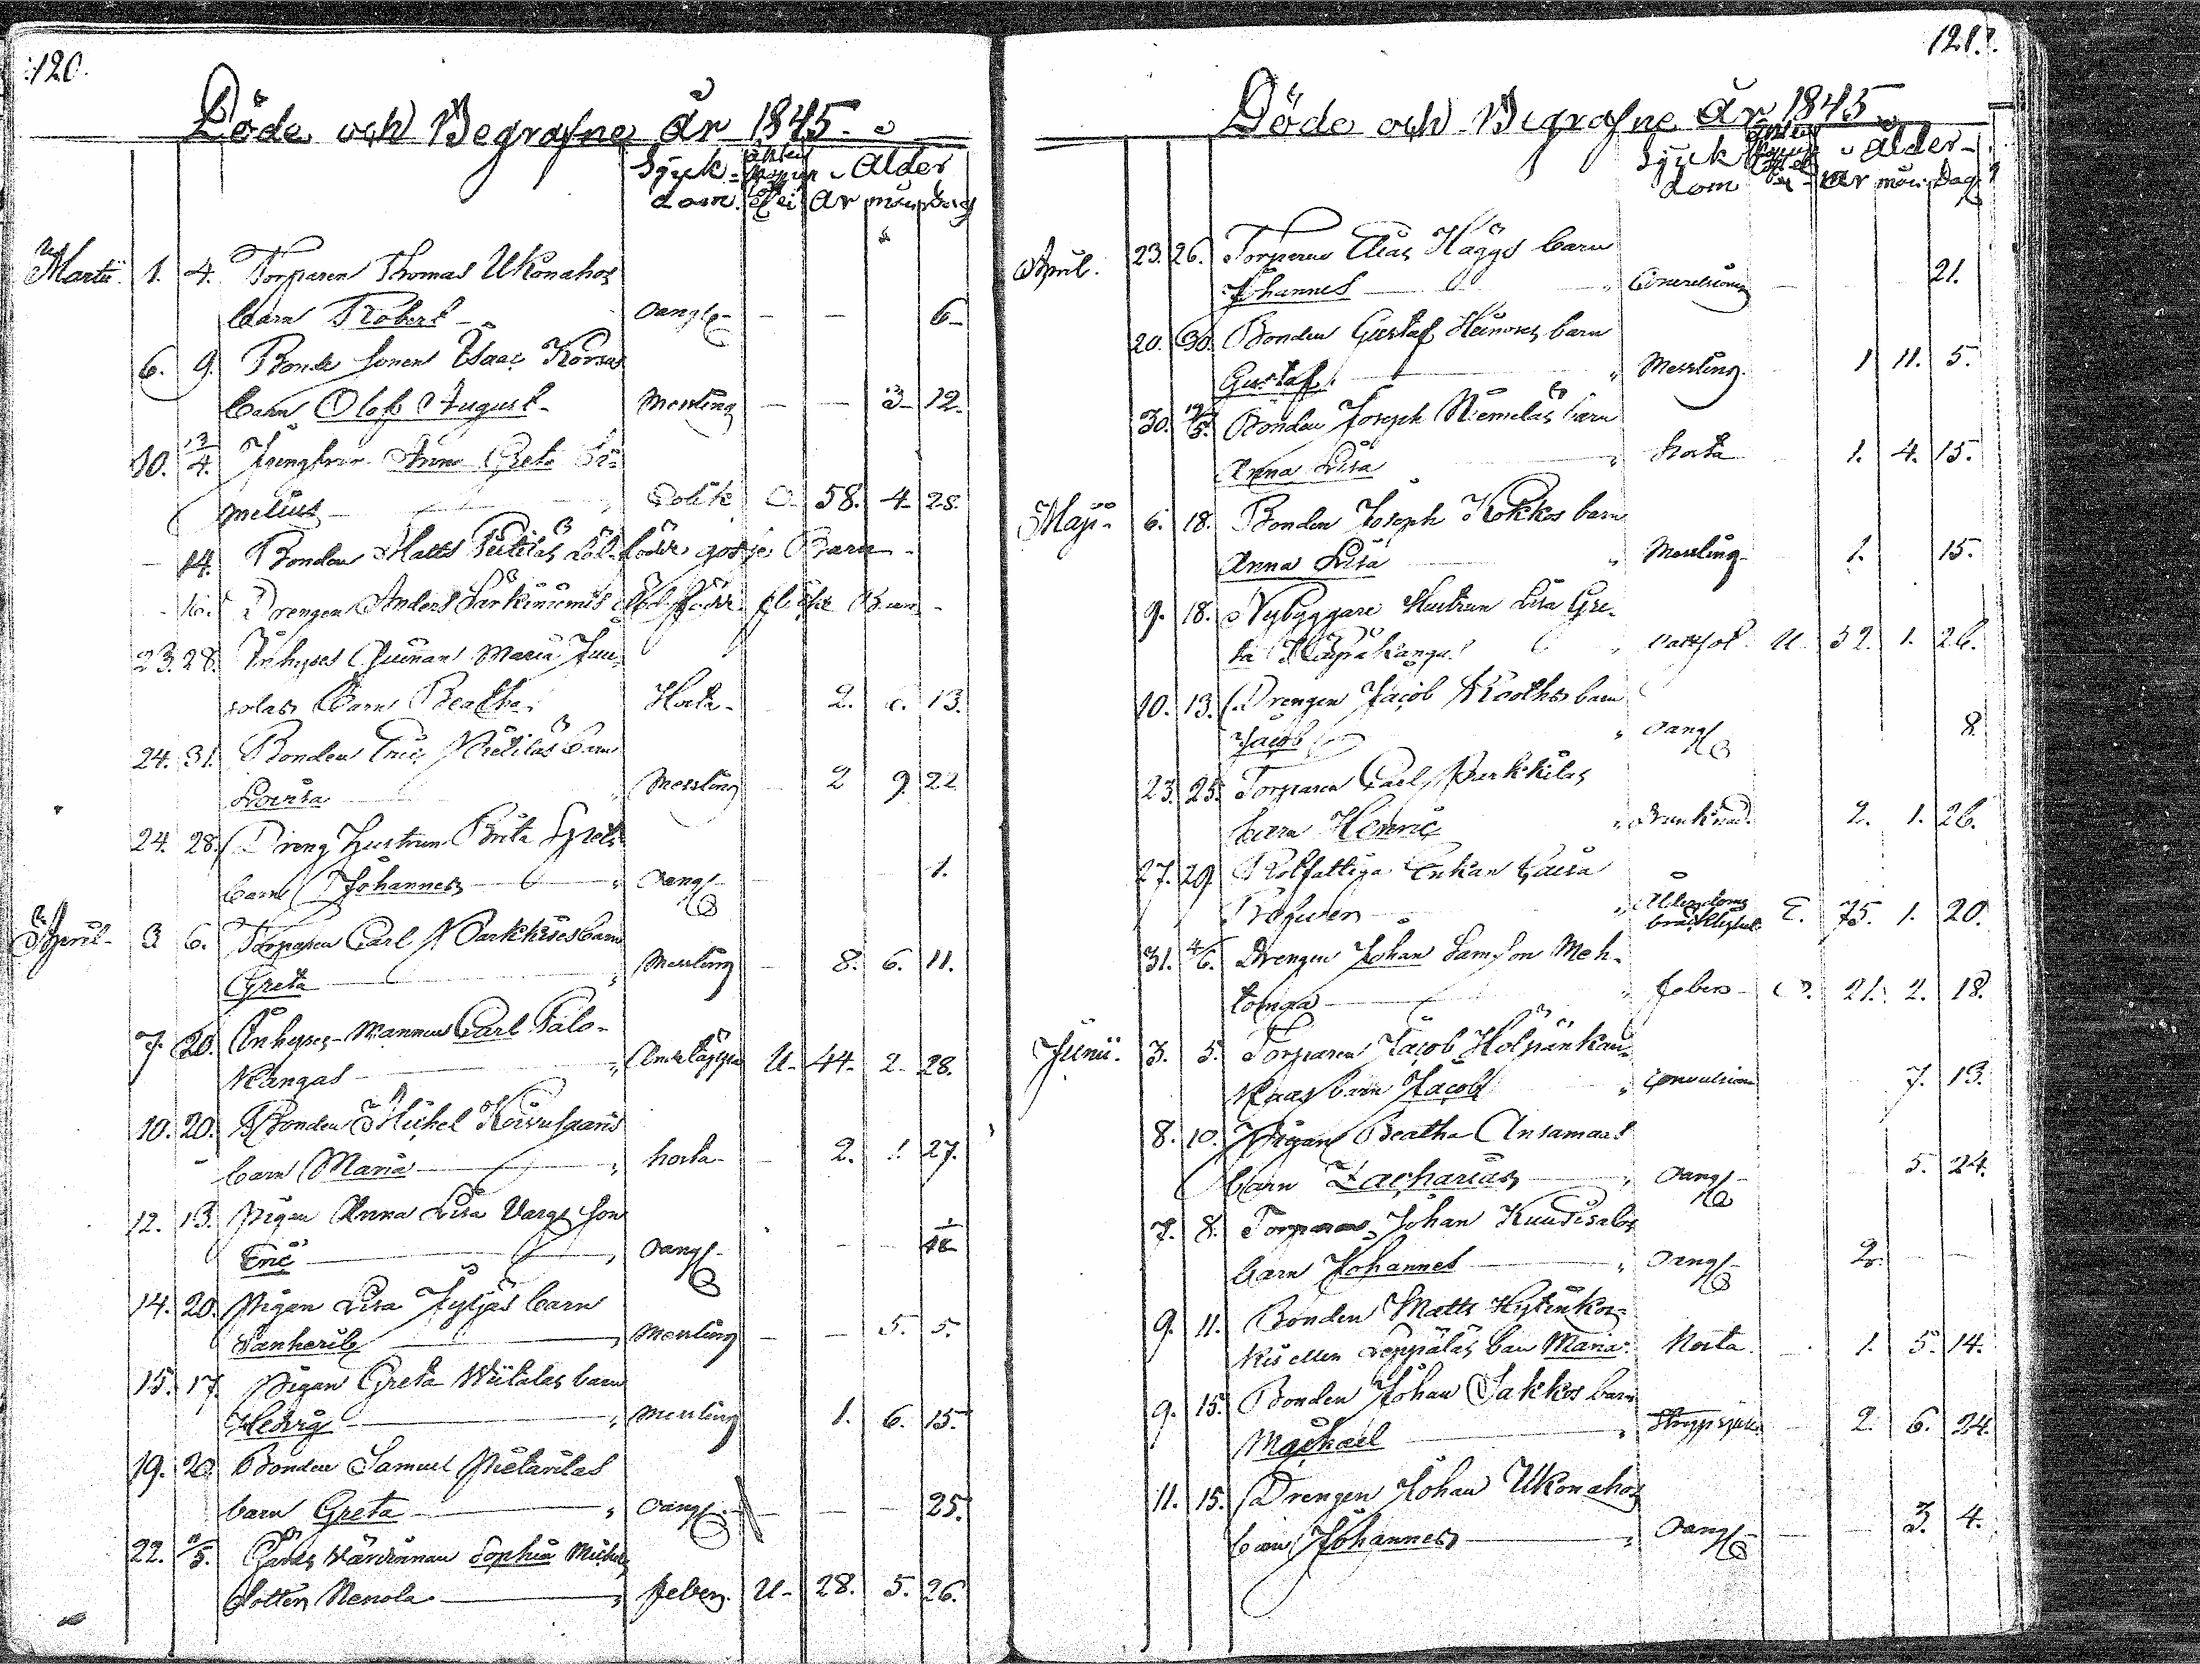 120.
Döde och Begrafne År 1845.
Sjuk- Ålder
dom. År mån Dag
Martii 1. 4. Torparen Thomas Ukonahos
barn Robert — oangf — — 6
6. 9. Bonde sonen Isaac Korvas
barn Olof August — Messling — — 3 12.
10. 13/4. Jungfrun Anna Greta
melius — Colik O. 58. 4. 28.
— 14. Bonden Matts död födde gosse Barn
16. Drengen Anders Särkiniemis död födde Barn
23. 28. Inhyses Qvinnan Maria Juu-
solas Barn Beatha Hosta 2. 13.
24. 31. Bonden Eric barn
Lovisa Messling 2 9 22
24. 28. Dreng Hustrun Brita
barn Johannes — oangf 1.
April 3 6. Torparen Carl Parkkises barn
Greta — Messling 8. 6. 11.
7. 20. Inhyses Mannen Carl Palo-
kangas — U. 44. 2. 28.
10. 20. Bonden Michel Koivusaaris
barn Maria — hosta 2. 27.
12. 13. Pigan Anna Lisa Vargs son
Eric — oangf
14. 20. Pigan Lisa Jyljäs barn
Sanherib — Messling — — 5. 5.
15. 17. Pigan Greta Wiitalas barn
Hedvig — Messling 1. 6. 15.
19. 20. Bonden Samuel Pietarilas
barn Greta — oangf — — 25.
22. /5. Gårds Wärdinnan Sophia Michels
dotter Nenola — feber U. 28. 5. 26.
121.
Döde och Begrafne År 1845
Sjuk Ålder
dom År mån Dag
April. 23. 26. Torparen Elias Häggs barn
Johannes — Convulsioner — 21.
20. 30. Bonden Gustaf Heinos barn
Gustaf — Messling 1 11. 5.
30. /5. Bonden Joseph Niemeläs barn
Anna Lisa — hosta 1. 4. 15.
Maji 6. 18. Bonden Joseph Kokkos barn
Anna Lisa — Messling 1. 15.
9. 18. Nybyggare Hustrun Lisa Gre-
ta U. 1. 26.
10. 13. Drengen Jacob Rooths barn
Jacob — oangf 8.
23. 25. Torparen Carl Parkkilas
barn Henric 2. 1. 26.
27. 29. Rotfattiga Enkan Caisa
Ålderdoms
bräcklighet E. 75. 1. 20.
31. 4/6. Drengen Johan Samson Meh-
tonga — feber O. 21. 2. 18.
Junii 3. 5. Torparen Jacob Hölpänkan-
kaas barn Jacob — Convulsion 7. 13.
8. 10. Pigan Beatha Ansamaas
barn Zacharias — oangf — 5. 24.
7. 8. Torparen Johan Kuusisalos
barn Johannes — oangf 2. — —
9. 11. Bonden Matts
eller Leppäläs barn Maria. hosta 1. 5. 14.
9. 15. Bonden Johan Sakkos barn
Michael — Strypsjuka 2. 6. 24.
11. 15. Drengen Johan Ukonahos
barn Johannes — oangf — 3. 4.